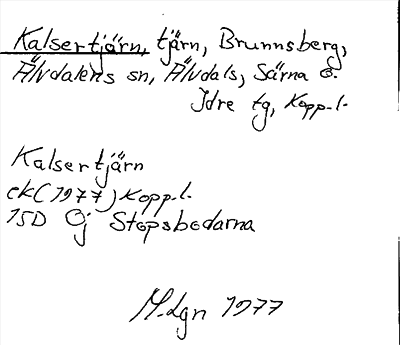 Kalsertjärn, tjärn, Brunnsberg,
Älvdalens sn, Älvdals, Särna o.
Idre tg, Kopp. l.
Kalsertjärn
ek (1977) Kopp. l.
15D Öj Stopsbodarna
M. Lgn 1977